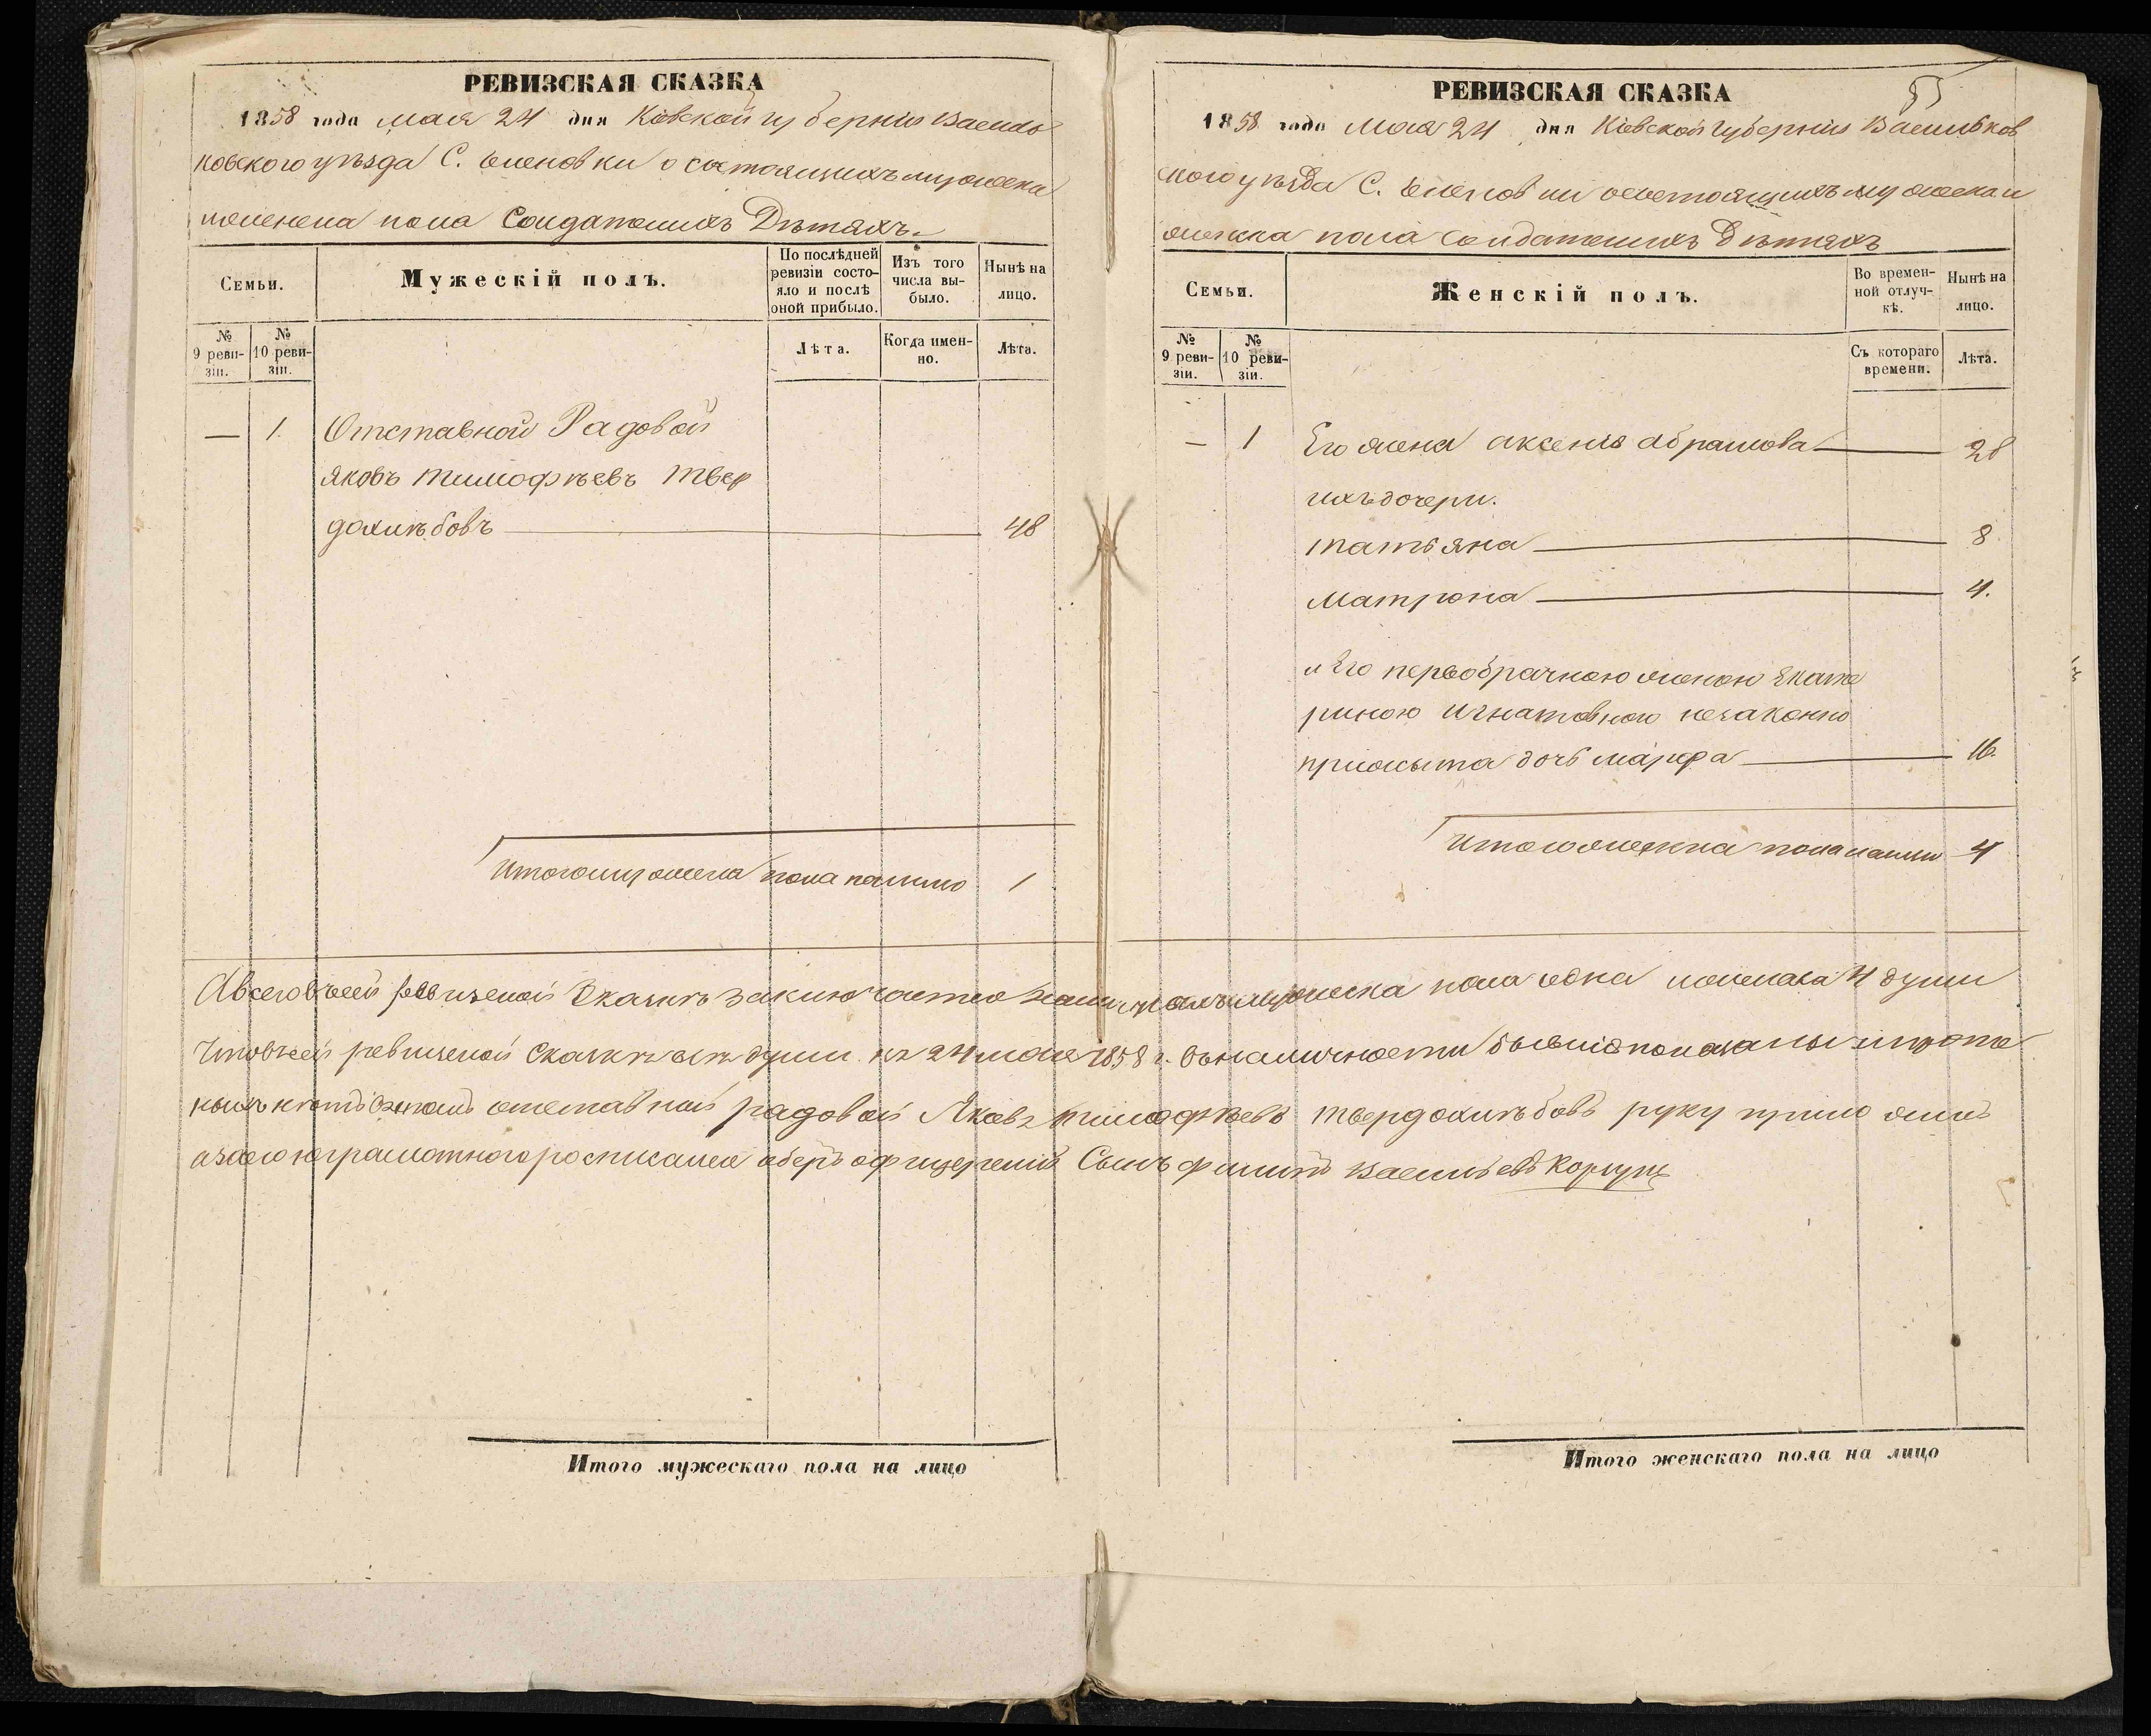 РЕВИЗСКАЯ СКАЗКА
1858 года мая 24 дня Кіевской губерніи Василь
ковского уѣзда С. Еленовки о состоящихъ мужеска
и женска пола Солдатскихъ Дѣтяхъ.
Семьи.
Мужескій полъ.
По послѣдней ревизіи состо-
яло и послѣ оной прибыло.
Изъ того числа вы-
было.
Нынѣ на лицо.
№ 9 реви-
зіи.
№ 10 реви-
зіи.
Лѣта.
Когда имен-
но.
Лѣта.
— 1. Отставной Рядовой
Яковъ Тимофѣевъ Твер
дохлѣбовъ 48
Итого мужеска пола налицо 1
РЕВИЗСКАЯ СКАЗКА
1858 года Мая 24 дня Кіевской Губерніи Васильков
ского уѣзда С. Еленовки о состоящихъ мужеска и
женска пола солдатскихъ Дѣтяхъ
Семьи.
Женскій полъ.
Во времен-
ной отлуч-
кѣ.
Нынѣ на лицо.
№ 9 реви-
зіи.
№ 10 реви-
зіи.
Съ котораго времени.
Лѣта.
— 1 Его жена Аксенія Абрамова 28
ихъ дочери.
Татьяна 8
Матрона 4.
и Его первобрачною женою Екате
риною Игнатовною незаконно
прижыта дочь Марфа 16.
Итого женска пола налицо 4
А всего въ сей ревизской Сказкѣ заключается мужеска пола одна и женска 4 души
Что въ сей ревизской Сказкѣ всѣ души къ 24 мая 1858 г. въ наличности бывшіе показаны и
отставной рядовой Яковъ Тимофѣевъ Твердохлѣбовъ руку приложилъ
а за его неграмотного росписался оберъ офицерскій Сынъ Филипъ Васильевъ
Итого мужескаго пола на лицо
Итого женскаго пола на лицо